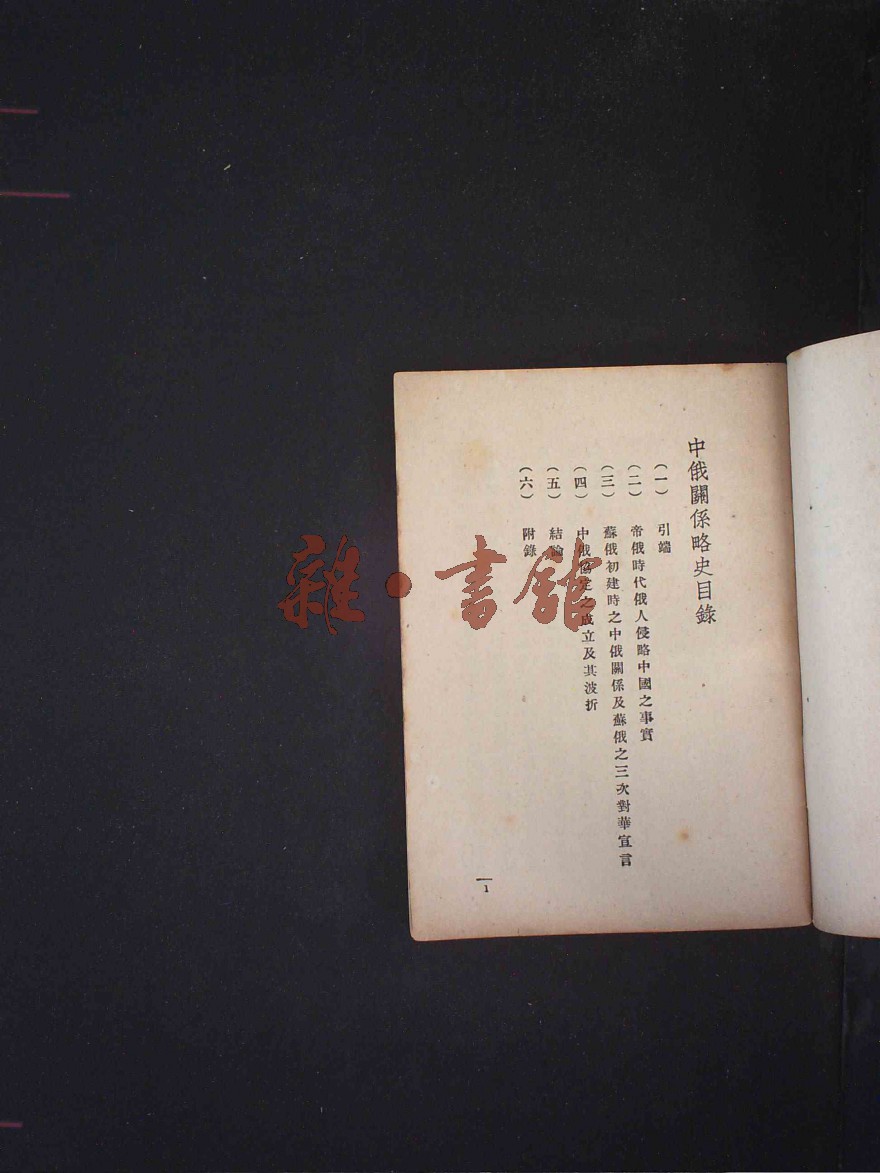 中俄關係略史目錄
(一) 引端
(二) 帝俄時代俄人侵略中國之事實
(三) 蘇俄初建時之中俄關係及蘇俄之三次對華宣言
(四) 中俄協定之成立及其波折
(五) 結論
(六) 附錄
1
雜·書館